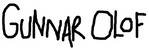 GUNNAR OLOF